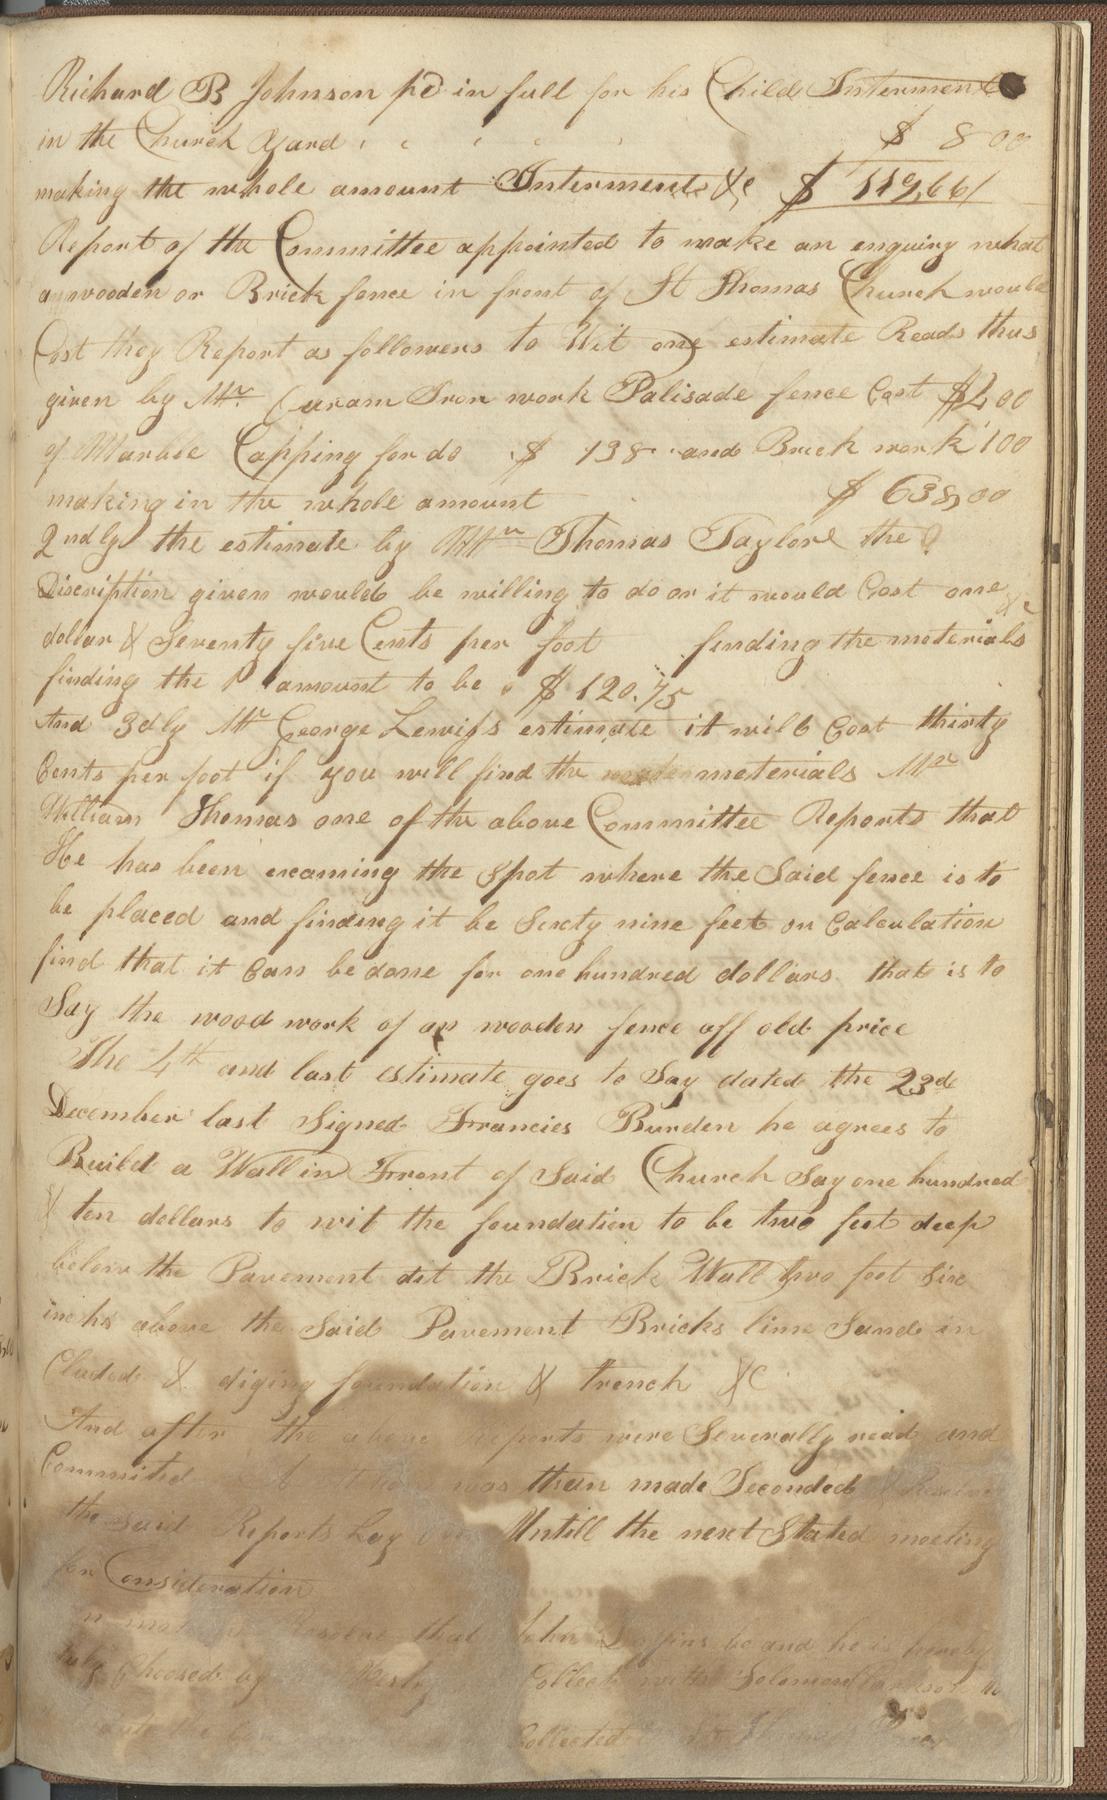 Richard B Johnson pd in full for his Child Interment
in the Church Yard $ 8 00
making the whole amount Interments &c $ 119,661
Report of the Committee appointed to make an enquiry what
a wooden or Brick fence in front of St Thomas Church would
Cost they Report as followers to Wit one estimate Reads thus
given by Mr Iron work Palisade fence Cost $400
of Marble Capping for do $ 138 and Brick work 100
making in the whole amount $ 638,00
2ndly the estimate by Mr Thomas Taylor the
Discription given would be willing to do or it would Cost one
dollar & Seventy five Cents per foot finding the materials &c
finding the amount to be $ 120.75
And 3dly Mr George Lewis's estimate it will Cost thirty
Cents per foot if you will find the meterials Mr
William Thomas one of the above Committee Reports that
He has been examing the Spot where the Said fence is to
be placed and finding it be Sixty nine feet on Calculation
find that it Can be done for one hundred dollars that is to
Say the wood work of an wooden fence off old price
The 4th and last estimate goes to Say dated the 23d
December last Signed Francies Burden he agrees to
Build a Wall in Front of Said Church Say one hundred
& ten dollars to wit the foundation to be two feet deep
below the Pavement dit the Brick Wall two foot Six
inchs above the Said Pavement Bricks lime Sand in
Cluded & diging foundation & trench &C
And after the above Reports were Severally read and
Committed was then made Seconded
the Said Reports Lay Untill the next Stated meeting
for Consideration
Resolve that John be and he is hereby
Choosed by Collect with Solomon
Collected